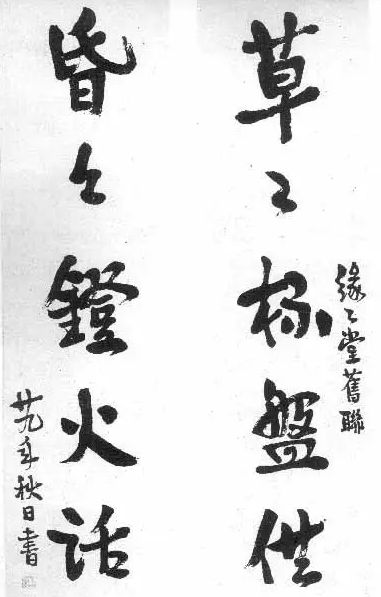 緣々堂舊聯
草々杯盤供
昏々鐙火話
廿九年秋日書